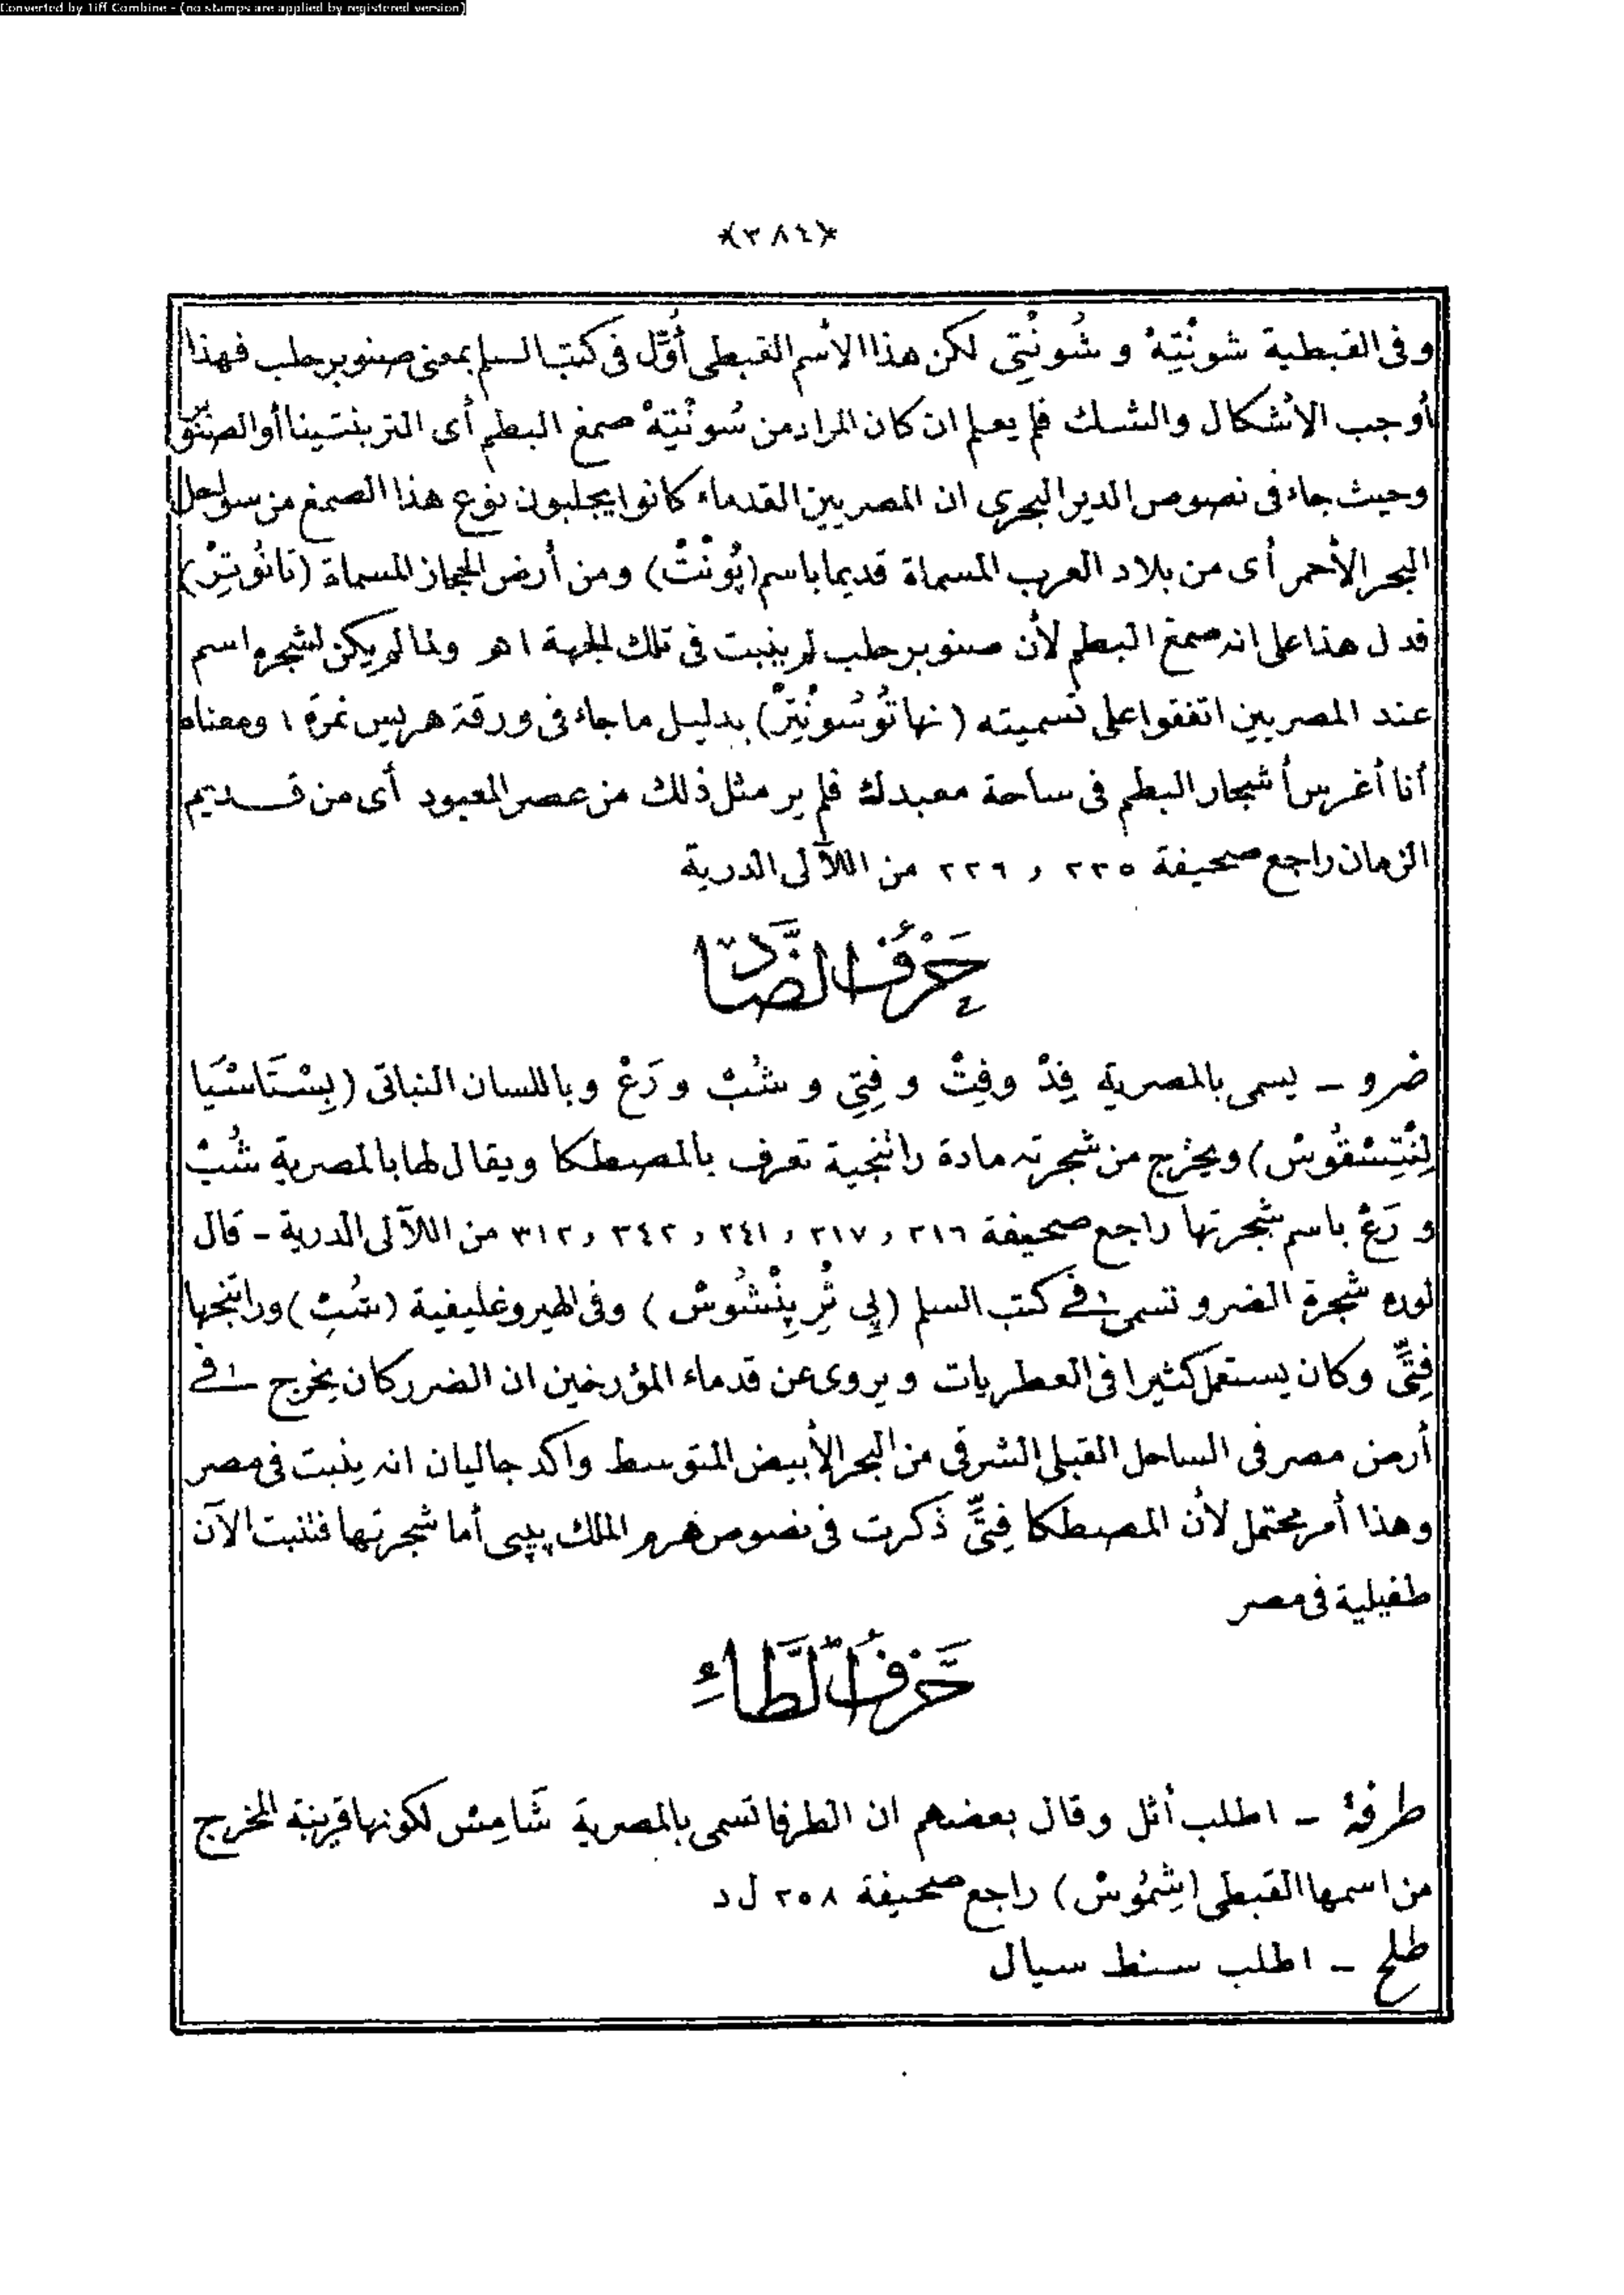 Converted by Tiff Combine - (no stamps are applied by registered version)
﴿٣٨٤﴾
وفى القبطية شونْتِهْ و شُونْتِى لكن هذا الأسم القبطى أُوِّل فى كتب السلم بمعنى صنوبر حلب فهذا
أوجب الأشكال والشك فلم يعلم ان كان المراد من سُونْتِهْ صمغ البطم أى التربنتينا أو الصنوبر
وحيث جاء فى نصوص الدير البحرى ان المصريين القدماء كانوا يجلبون نوع هذا الصمغ من سواحل
البحر الأحمر أى من بلاد العرب المسماة قديما باسم (پُونْتْ) ومن أرض الحجاز المسماة (تانُوتِرْ)
فدل هذا على انه صمغ البطم لأن صنوبر حلب لم ينبت فى تلك الجهة اهـ ولما لم يكن لشجره اسم
عند المصريين اتفقوا على تسميته (نهاتُوسُونْتِرْ) بدليل ما جاء فى ورقة هريس نمرة ١ ومعناه
أنا أغرس أشجار البطم فى ساحة معبدك فلم ير مثل ذلك من عصر المعبود أى من قديم
الزمان راجع صحيفة ٢٣٥ و ٢٢٦ من اللآلى الدرية
حَرْفُ الضَّادِ
ضرو – يسمى بالمصرية فِدْ وفِتْ و فِتِى و شُبْ و رَعْ وباللسان النباتى (بِسْتَاسْيَا
لِنْتِسْقُوسْ) ويخرج من شجرته مادة راتنجية تعرف بالمصطكا ويقال لها بالمصرية شُبْ
و رَعْ باسم شجرتها راجع صحيفة ٢١٦ و ٢١٧ و ٢٤١ و ٢٤٢ و ٣١٢ من اللآلى الدرية – قال
لوره شجرة الضرو تسمى فى كتب السلم (پِى ثْرِ پِنْشُوسْ) وفى الهيروغليفية (شُبْ) وراتنجها
فِتِّى وكان يستعمل كثيرا فى العطريات ويروى عن قدماء المؤرخين ان الضرر كان يخرج فى
أرض مصر فى الساحل القبلى الشرقى من البحر الأبيض المتوسط واكد جاليان انه ينبت فى مصر
وهذا أمر محتمل لأن المصطكا فِتِّى ذكرت فى نصوص هرم الملك پيپى أما شجرتها فتنبت الآن
طفيلية فى مصر
حَرْفُ الطَّاءِ
طرفة – اطلب أثل وقال بعضهم ان الطرفا تسمى بالمصرية شَامِسْ لكونها قريبة المخرج
من اسمها القبطى (شِمُوسْ) راجع صحيفة ٢٥٨ ل د
طلح – اطلب سنط سيال